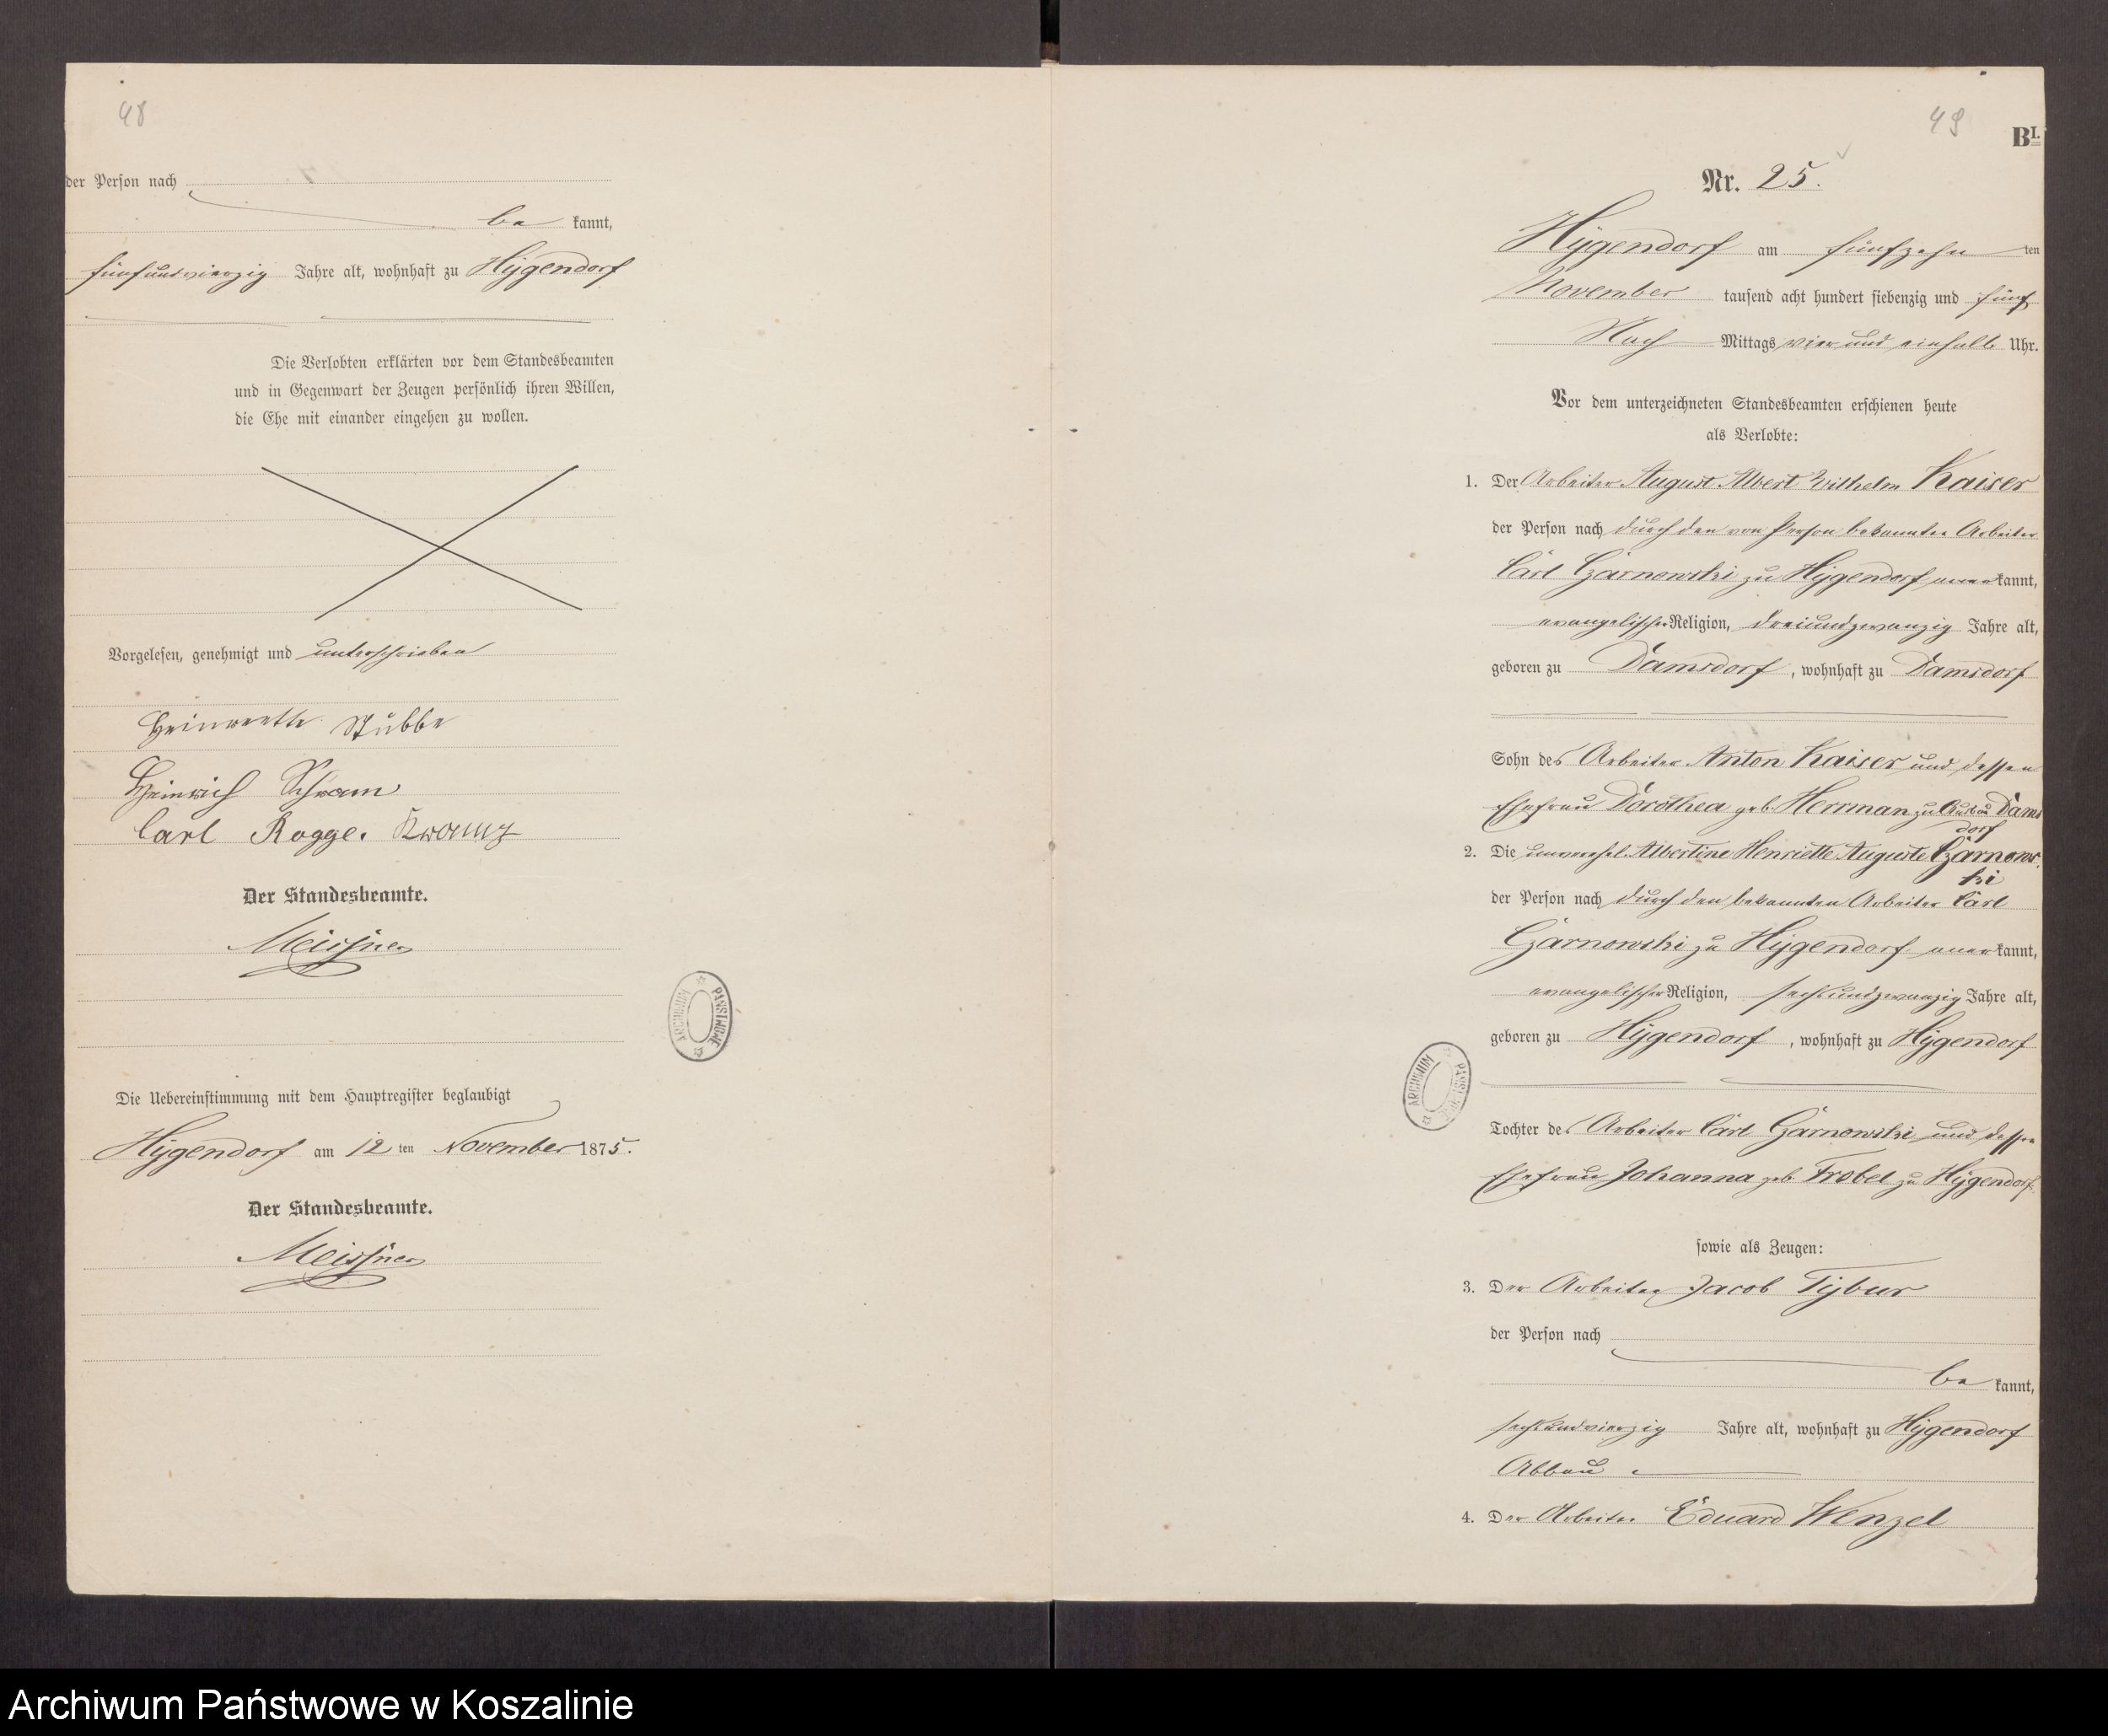 48
der Person nach
be kannt,
fünfundvierzig Jahre alt, wohnhaft zu Hÿgendorf
Die Verlobten erklärten vor dem Standesbeamten
und in Gegenwart der Zeugen persönlich ihren Willen,
die Ehe mit einander eingehen zu wollen.
Vorgelesen, genehmigt und unterschrieben
Stübbe
Heinrich Schram
Carl Rogge.
Der Standesbeamte.
Meissner
Die Uebereinstimmung mit dem Hauptregister beglaubigt
Hÿgendorf am 12 ten November 1875.
Der Standesbeamte.
Meissner
ARCHIWUM PAŃSTWOWE
49
B.
Nr. 25.
Hÿgendorf am fünfzehn ten
November tausend acht hundert siebenzig und fünf
Nach Mittags vier und einhalb Uhr.
Vor dem unterzeichneten Standesbeamten erschienen heute
als Verlobte:
1. Der Arbeiter August Albert Wilhelm Kaiser
der Person nach durch den von Person bekannten Arbeiter
Carl Czarnowski zu Hÿgendorf anerkannt,
evangelischer Religion, dreiundzwanzig Jahre alt,
geboren zu Damsdorf, wohnhaft zu Damsdorf
Sohn des Arbeiter Anton Kaiser und dessen
Ehefrau Dorothea geb. Herrman zu Abbau Dams
dorf
2. Die unverehel. Albertine Henriette Auguste Czarnows-
ki
der Person nach durch den bekannten Arbeiter Carl
Czarnowski zu Hÿgendorf anerkannt,
evangelischer Religion, sechsundzwanzig Jahre alt,
geboren zu Hÿgendorf, wohnhaft zu Hÿgendorf
ARCHIWUM PAŃSTWOWE
Tochter des Arbeiter Carl Czarnowski und dessen
Ehefrau Johanna geb. Frobel zu Hÿgendorf.
sowie als Zeugen:
3. Der Arbeiter Jacob Tÿbur
der Person nach
be kannt,
sechsundvierzig Jahre alt, wohnhaft zu Hÿgendorf
Abbau
4. Der Arbeiter Eduard Wenzel
Archiwum Państwowe w Koszalinie